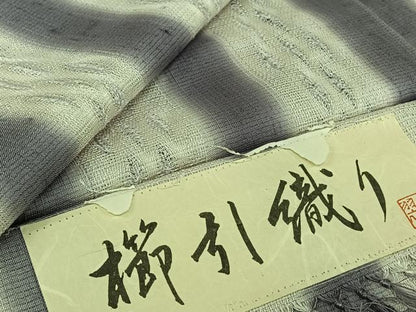 櫛引織り